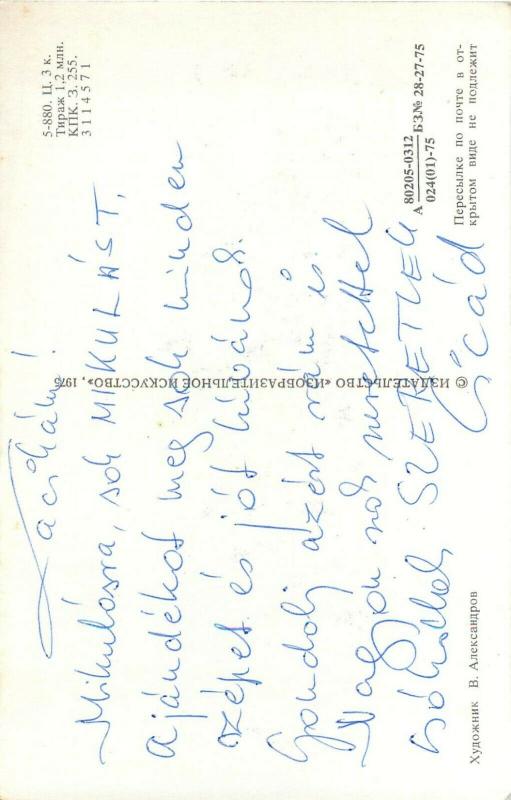 Lacikám!
Mikulásra, sok MIKULÁST,
ajándékot meg sok minden
szépet és jót kívánok.
Gondolj azért rám is.
Nagyon sok szeretettel
SZERETLEK
Icád
5-880. Ц. 3 к.
Тираж 1,2 млн.
КПК. З. 255.
3 1 1 4 5 7 1
© ИЗДАТЕЛЬСТВО «ИЗОБРАЗИТЕЛЬНОЕ ИСКУССТВО», 1975
А 80205-0312 БЗ№ 28-27-75
024(01)-75
Пересылке по почте в от-
крытом виде не подлежит
Художник В. Александров